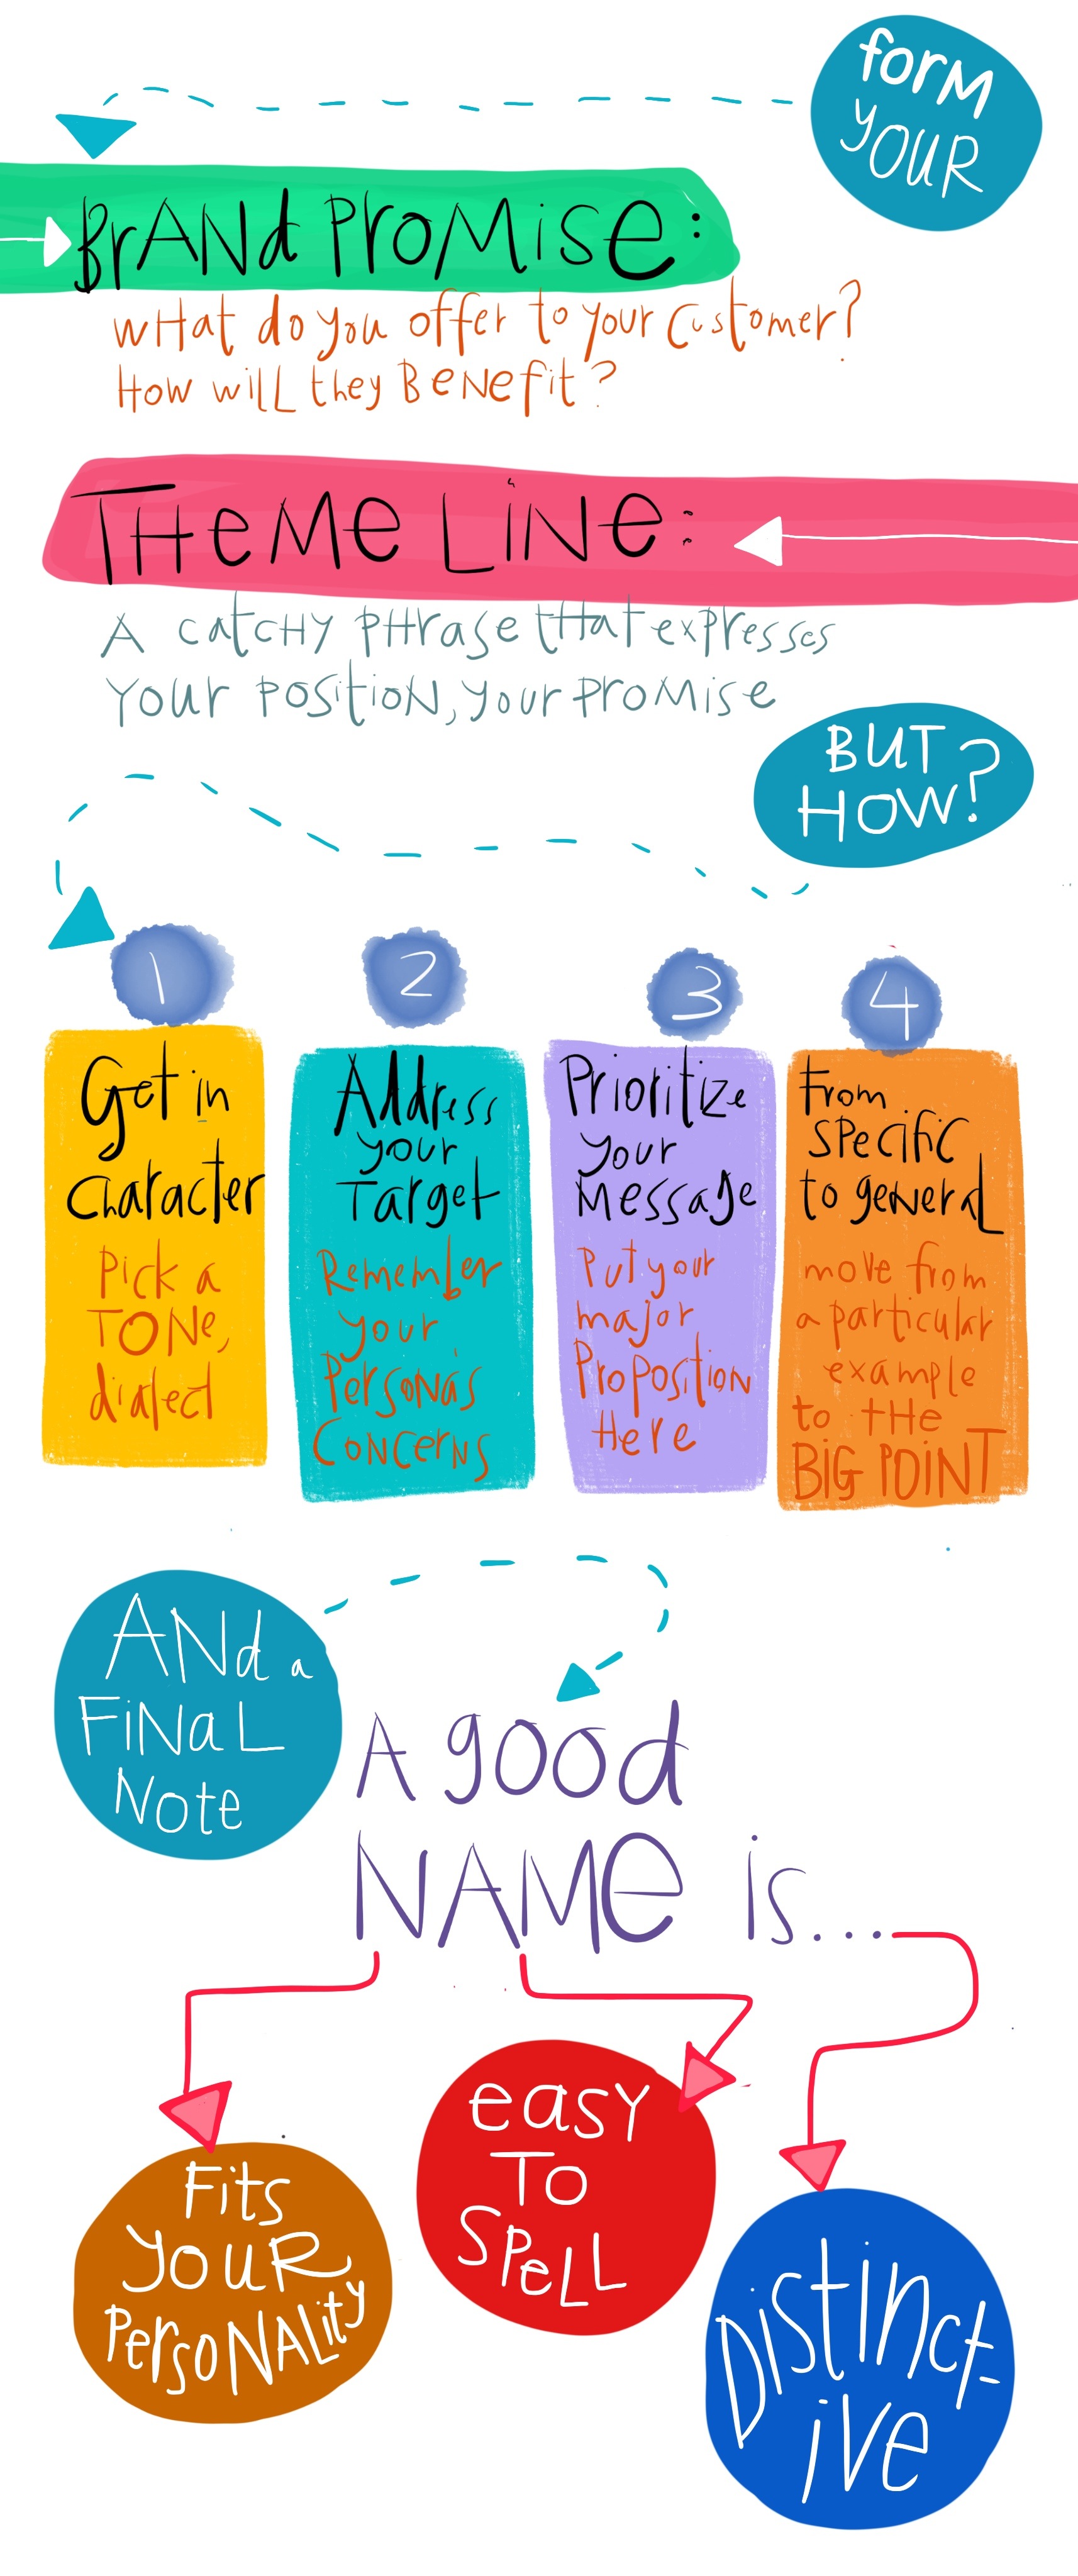 forM
YOUR
BrANd PrOMise:
wHat do you offer to your Customer?
How wiLL they BeNefit?
THeMe LiNe:
A catcHy pHrase tHat expresses
your positioN, your proMise
BUT
HOW?
1
Get in
Character
Pick a
TONe,
dialect
2
Address
your
Target
Remember
your
Persona's
CoNcerNs
3
Prioritize
your
Message
Put your
major
PropositioN
Here
4
From
specific
to geNeral
move from
a particular
example
to tHe
BIG POiNT
ANd a
FiNaL
Note
A good
NAMe is...
Fits
youR
PersoNALity
easy
To
SPeLL
Distinct-
ive